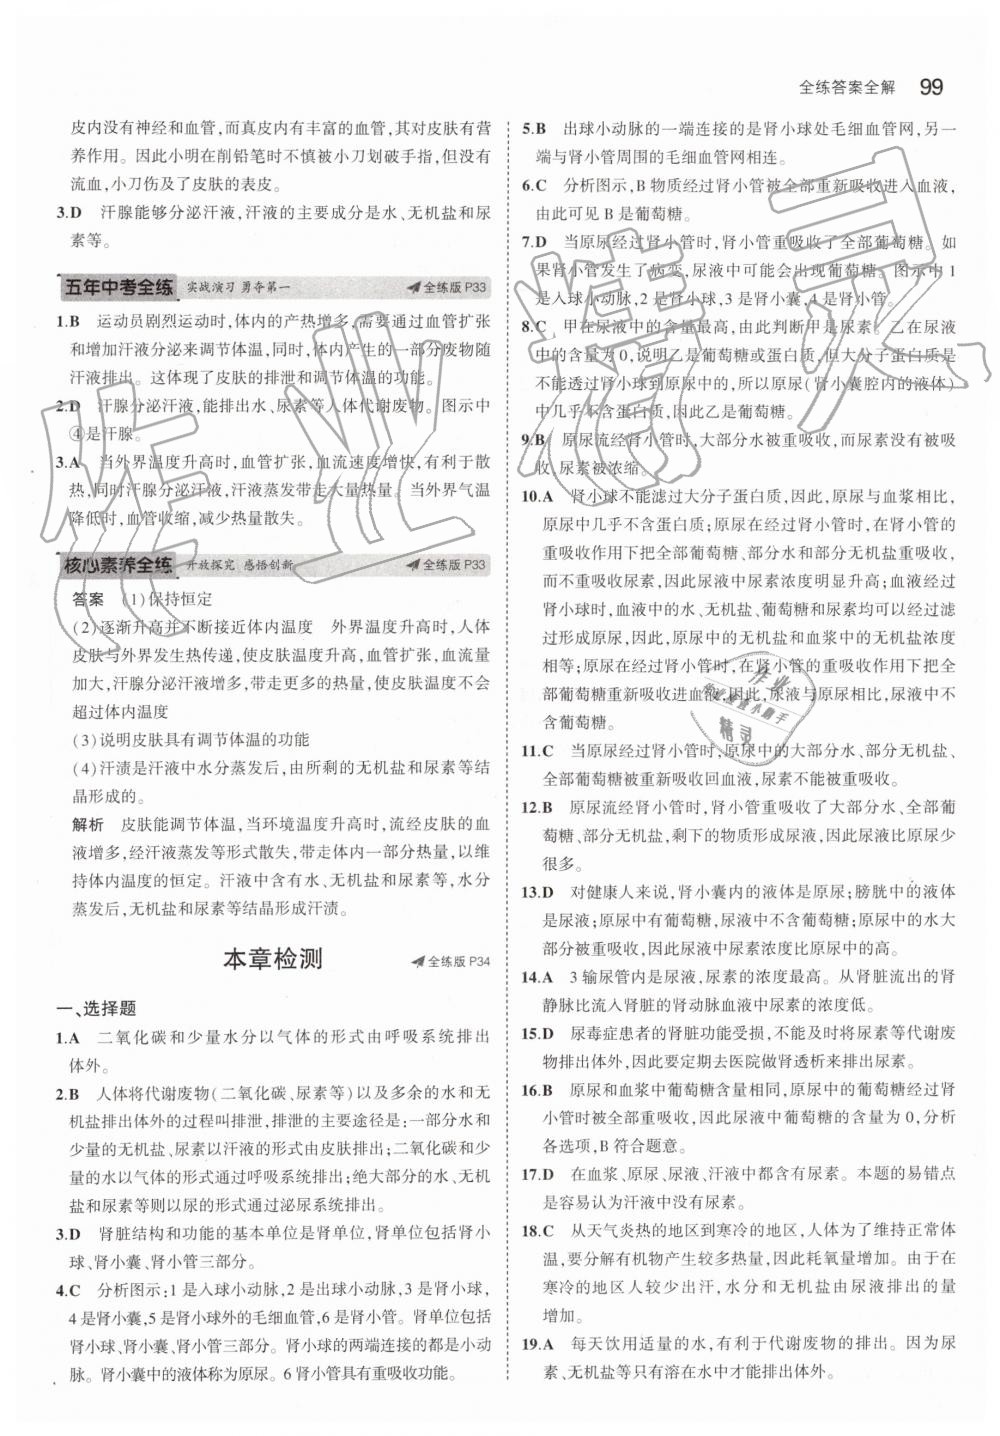 全练答案全解 99
皮内没有神经和血管,而真皮内有丰富的血管,其对皮肤有营
养作用。因此小明在削铅笔时不慎被小刀划破手指,但没有
流血,小刀伤及了皮肤的表皮。
3.D 汗腺能够分泌汗液,汗液的主要成分是水、无机盐和尿
素等。
五年中考全练 实战演习 勇夺第一 全练版 P33
1.B 运动员剧烈运动时,体内的产热增多,需要通过血管扩张
和增加汗液分泌来调节体温,同时,体内产生的一部分废物随
汗液排出。这体现了皮肤的排泄和调节体温的功能。
2.D 汗腺分泌汗液,能排出水、尿素等人体代谢废物。图示中
④是汗腺。
3.A 当外界温度升高时,血管扩张,血流速度增快,有利于散
热,同时汗腺分泌汗液,汗液蒸发带走大量热量。当外界气温
降低时,血管收缩,减少热量散失。
核心素养全练 开放探究 感悟创新 全练版 P33
答案 (1)保持恒定
(2)逐渐升高并不断接近体内温度 外界温度升高时,人体
皮肤与外界发生热传递,使皮肤温度升高,血管扩张,血流量
加大,汗腺分泌汗液增多,带走更多的热量,使皮肤温度不会
超过体内温度
(3)说明皮肤具有调节体温的功能
(4)汗渍是汗液中水分蒸发后,由所剩的无机盐和尿素等结
晶形成的。
解析 皮肤能调节体温,当环境温度升高时,流经皮肤的血
液增多,经汗液蒸发等形式散失,带走体内一部分热量,以维
持体内温度的恒定。汗液中含有水、无机盐和尿素等,水分
蒸发后,无机盐和尿素等结晶形成汗渍。
本章检测 全练版 P34
一、选择题
1.A 二氧化碳和少量水分以气体的形式由呼吸系统排出
体外。
2.B 人体将代谢废物(二氧化碳、尿素等)以及多余的水和无
机盐排出体外的过程叫排泄,排泄的主要途径是:一部分水和
少量的无机盐、尿素以汗液的形式由皮肤排出;二氧化碳和少
量的水以气体的形式通过呼吸系统排出;绝大部分的水、无机
盐和尿素等则以尿的形式通过泌尿系统排出。
3.D 肾脏结构和功能的基本单位是肾单位,肾单位包括肾小
球、肾小囊、肾小管三部分。
4.C 分析图示:1 是入球小动脉,2 是出球小动脉,3 是肾小球,
4 是肾小囊,5 是肾小球外的毛细血管,6 是肾小管。肾单位包括
肾小球、肾小囊、肾小管三部分。肾小球的两端连接的都是小动
脉。肾小囊中的液体称为原尿。6 肾小管具有重吸收功能。
5.B 出球小动脉的一端连接的是肾小球处毛细血管网,另一
端与肾小管周围的毛细血管网相连。
6.C 分析图示,B 物质经过肾小管被全部重新吸收进入血液,
由此可见 B 是葡萄糖。
7.D 当原尿经过肾小管时,肾小管重吸收了全部葡萄糖。如
果肾小管发生了病变,尿液中可能会出现葡萄糖。图示中 1
是入球小动脉,2 是肾小球,3 是肾小囊,4 是肾小管。
8.C 甲在尿液中的含量最高,由此判断甲是尿素;乙在尿液
中的含量为 0,说明乙是葡萄糖或蛋白质,但大分子蛋白质是
不能透过肾小球到原尿中的,所以原尿(肾小囊腔内的液体)
中几乎不含蛋白质,因此乙是葡萄糖。
9.B 原尿流经肾小管时,大部分水被重吸收,而尿素没有被吸
收,尿素被浓缩。
10.A 肾小球不能滤过大分子蛋白质,因此,原尿与血浆相比,
原尿中几乎不含蛋白质;原尿在经过肾小管时,在肾小管的
重吸收作用下把全部的葡萄糖、大部分水和部分无机盐吸收,
而不重吸收尿素,因此尿液中尿素浓度明显升高;血液经过
肾小球时,血液中的水、无机盐、葡萄糖和尿素均可以经过滤
过形成原尿,因此,原尿中的无机盐和血浆中的无机盐浓度
相等;原尿在经过肾小管时,在肾小管的重吸收作用下把全
部葡萄糖重新吸收进血液,因此,尿液与原尿相比,尿液中不
含葡萄糖。
11.C 当原尿经过肾小管时,原尿中的大部分水、部分无机盐、
全部葡萄糖被重新吸收回血液,尿素不能被重吸收。
12.B 原尿流经肾小管时,肾小管重吸收了大部分水、全部葡
萄糖、部分无机盐,剩下的物质形成尿液,因此尿液比原尿少
很多。
13.D 对健康人来说,肾小囊内的液体是原尿;膀胱中的液体
是尿液;原尿中有葡萄糖,尿液中不含葡萄糖。原尿中的水大
部分被重吸收,因此尿液中尿素浓度比原尿中的高。
14.A 3 输尿管内是尿液,尿素的浓度最高。从肾脏流出的肾
静脉比流入肾脏的肾动脉血液中尿素的浓度低。
15.D 尿毒症患者的肾脏功能受损,不能及时将尿素等代谢废
物排出体外,因此要定期去医院做肾透析来排出尿素。
16.B 原尿和血浆中葡萄糖含量相同,原尿中的葡萄糖经过肾
小管时被全部重吸收,因此尿液中葡萄糖的含量为 0,分析
各选项,B 符合题意。
17.D 在血浆、原尿、尿液、汗液中都含有尿素。本题的易错点
是容易认为汗液中没有尿素。
18.C 从天气炎热的地区到寒冷的地区,人体为了维持正常体
温,要分解有机物产生较多热量,因此耗氧量增加。由于在
寒冷的地区人较少出汗,水分和无机盐由尿液排出的量
增加。
19.A 每天饮用适量的水,有利于代谢废物的排出。因为尿
素、无机盐等只有溶在水中才能排出体外。
作业精灵
作业
精灵